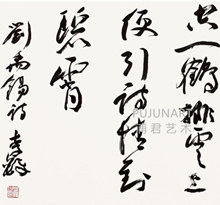 空一鹤排云上
便引诗情到
碧霄
刘禹锡诗 李毅
PUJUNART
浦君艺术